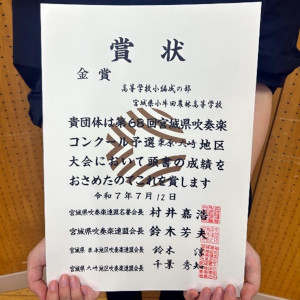 賞状
金賞
高等学校小編成の部
宮城県小牛田農林高等学校
貴団体は第68回宮城県吹奏楽
コンクール予選栗原・大崎地区
大会において頭書の成績を
おさめたのでこれを賞します
令和7年7月12日
宮城県吹奏楽連盟名誉会長 村井嘉浩
宮城県吹奏楽連盟会長 鈴木芳夫
宮城県 地区吹奏楽連盟会長 鈴木
宮城県 大崎地区吹奏楽連盟会長 千葉秀